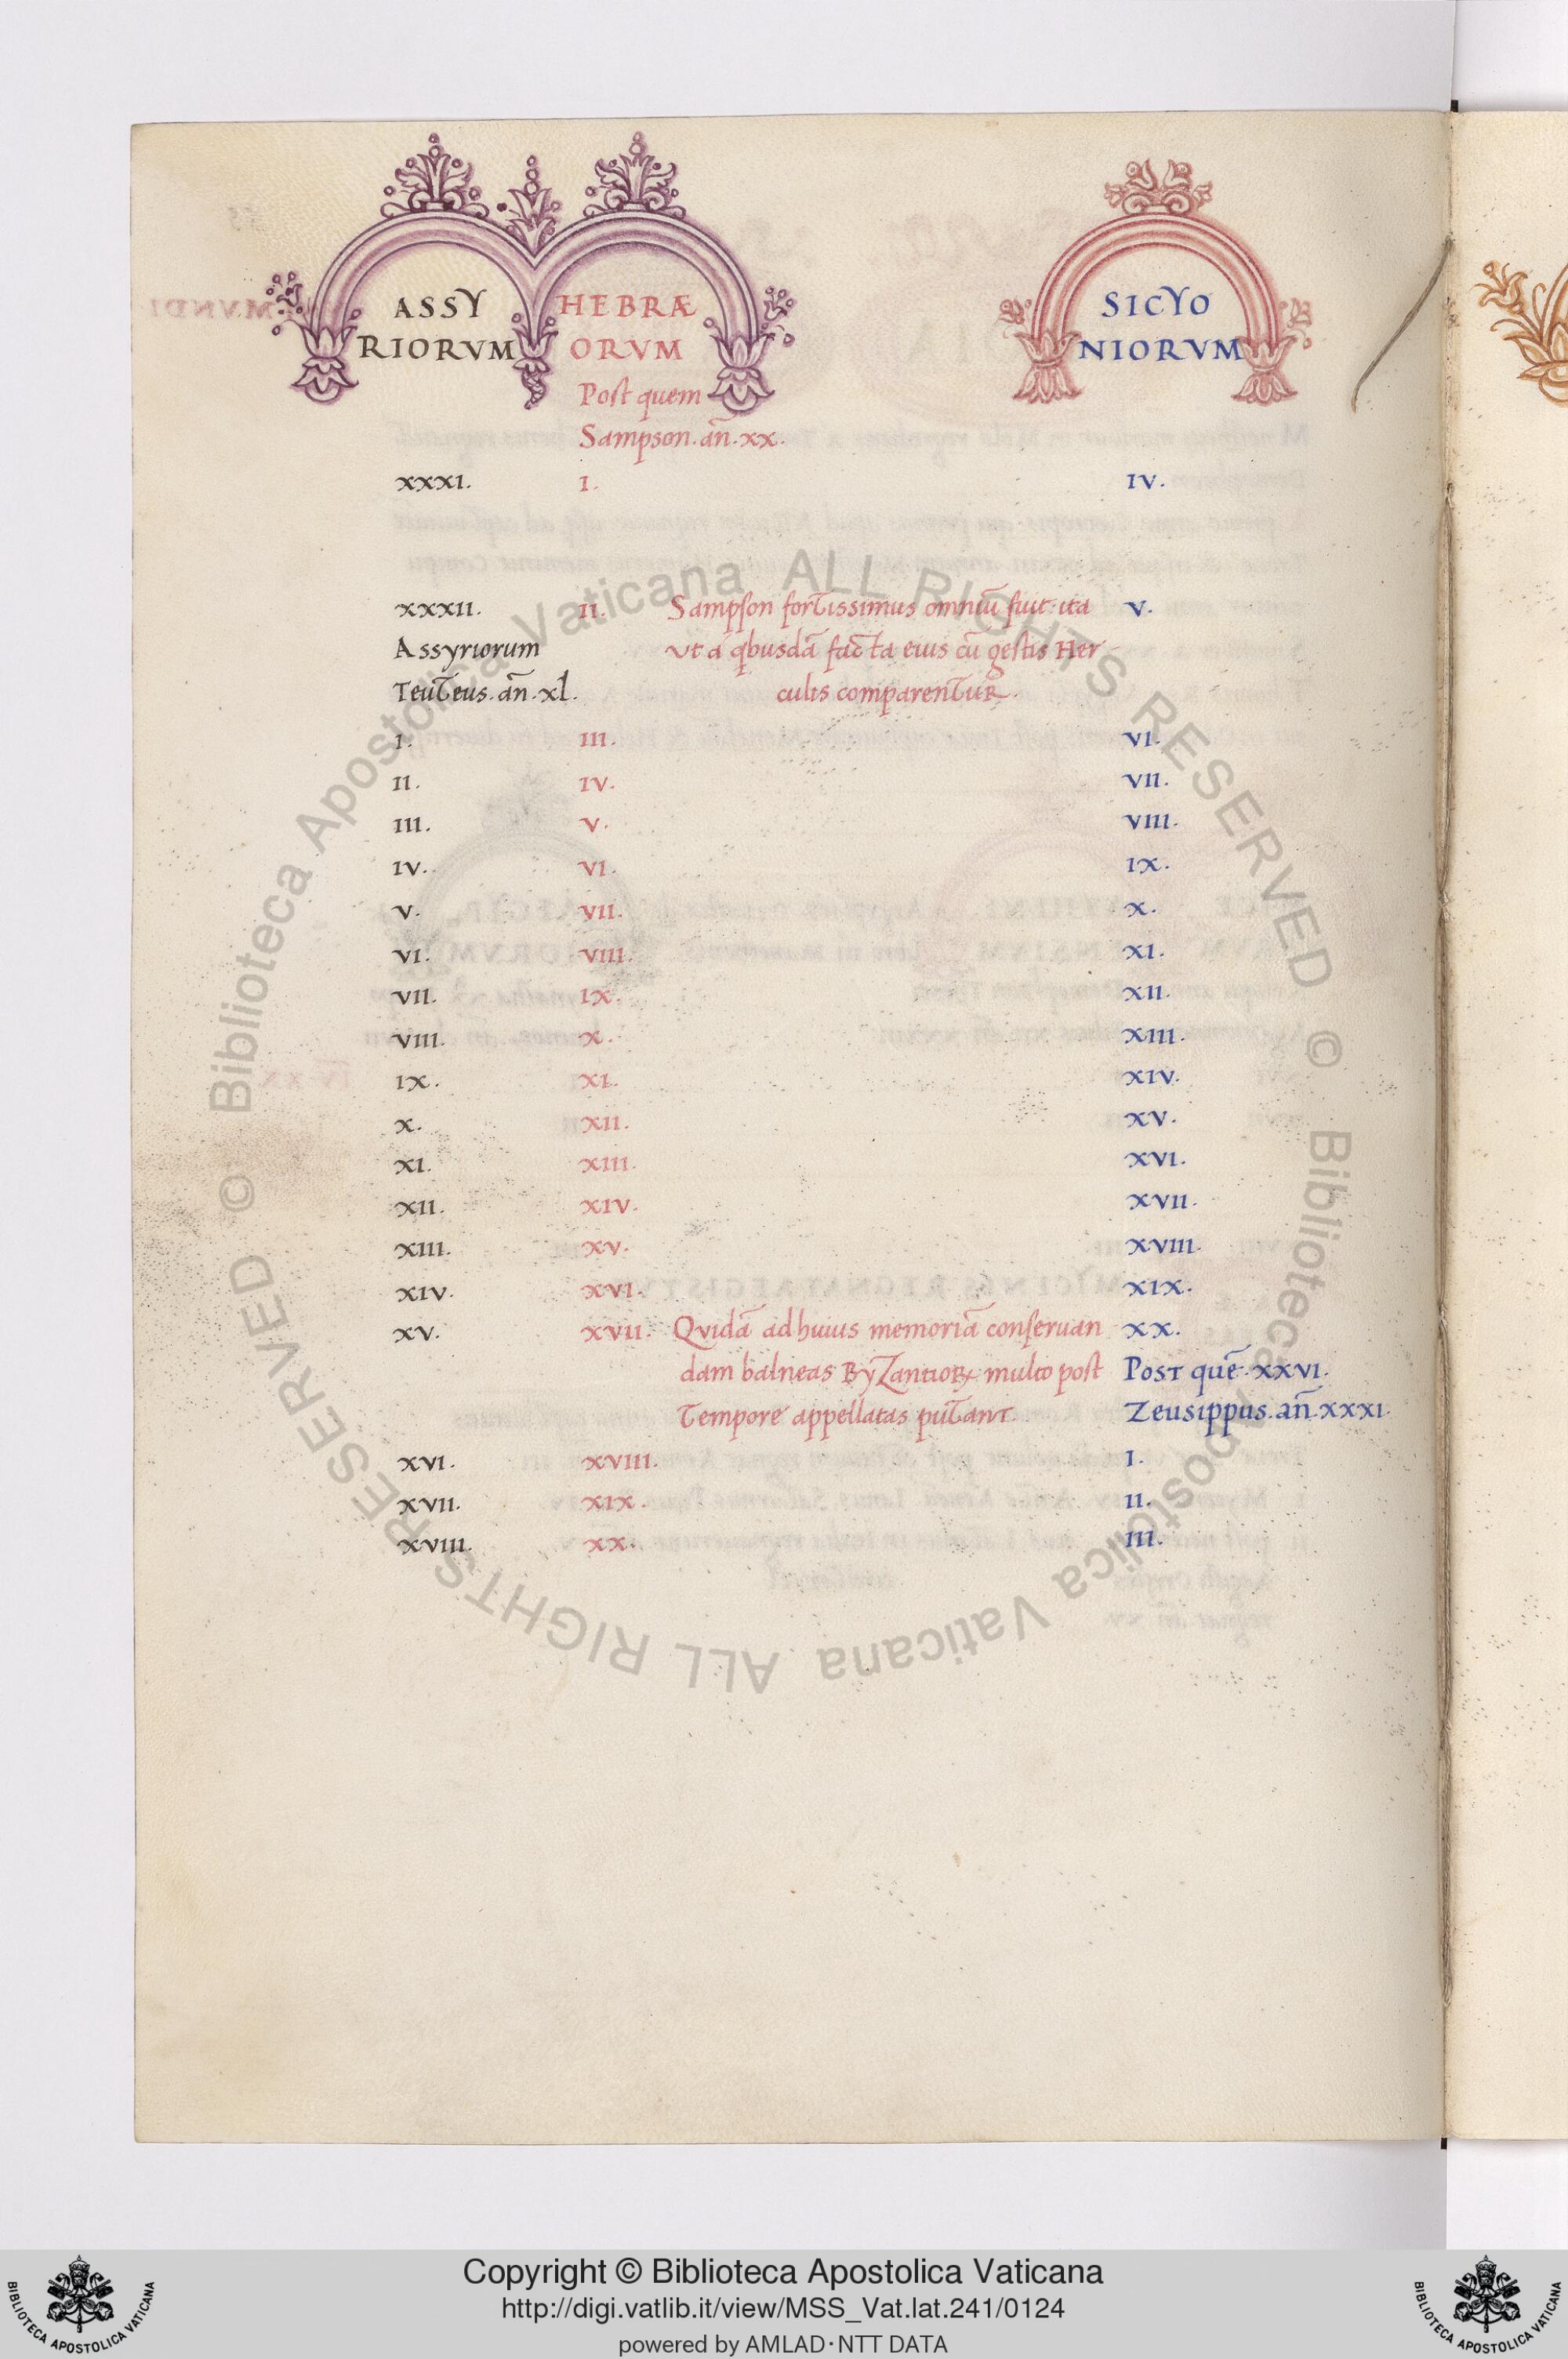 ASSY HEBRÆ SICYO
RIORVM ORVM NIORVM
Post quem
Sampson. an̄. xx.
xxxI. I. IV.
xxxII. II. Sampson fortissimus omniū fuit: ita V.
Assyriorum ut a qbusdā facta eius cū gestis Her
Teuteus. an̄. xl. culis comparentur.
I. III. VI.
II. IV. VII.
III. V. VIII.
IV. VI. IX.
V. VII. X.
VI. VIII. XI.
VII. IX. XII.
VIII. X. XIII.
IX. XI. XIV.
X. XII. XV.
XI. XIII. XVI.
XII. XIV. XVII.
XIII. XV. XVIII.
XIV. XVI. XIX.
XV. XVII. Qvidā ad huius memoriā conseruan XX.
dam balneas ByZantioꝝ multo post Post quē. XXVI.
Tempore appellatas putant Zeusippus. an̄. XXXI.
XVI. XVIII. I.
XVII. XIX. II.
XVIII. XX. III.
© Biblioteca Apostolica Vaticana ALL RIGHTS RESERVED © Biblioteca Apostolica Vaticana ALL RIGHTS RESERVED
Copyright © Biblioteca Apostolica Vaticana
http://digi.vatlib.it/view/MSS_Vat.lat.241/0124
powered by AMLAD·NTT DATA
BIBLIOTECA APOSTOLICA VATICANA
BIBLIOTECA APOSTOLICA VATICANA